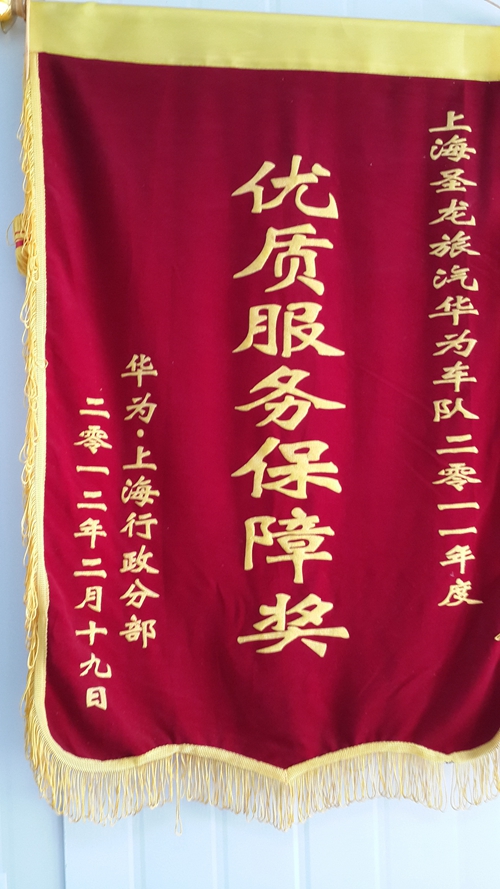 上海圣龙旅汽华为车队二零一一年度
优质服务保障奖
华为·上海行政分部
二零一二年二月十九日